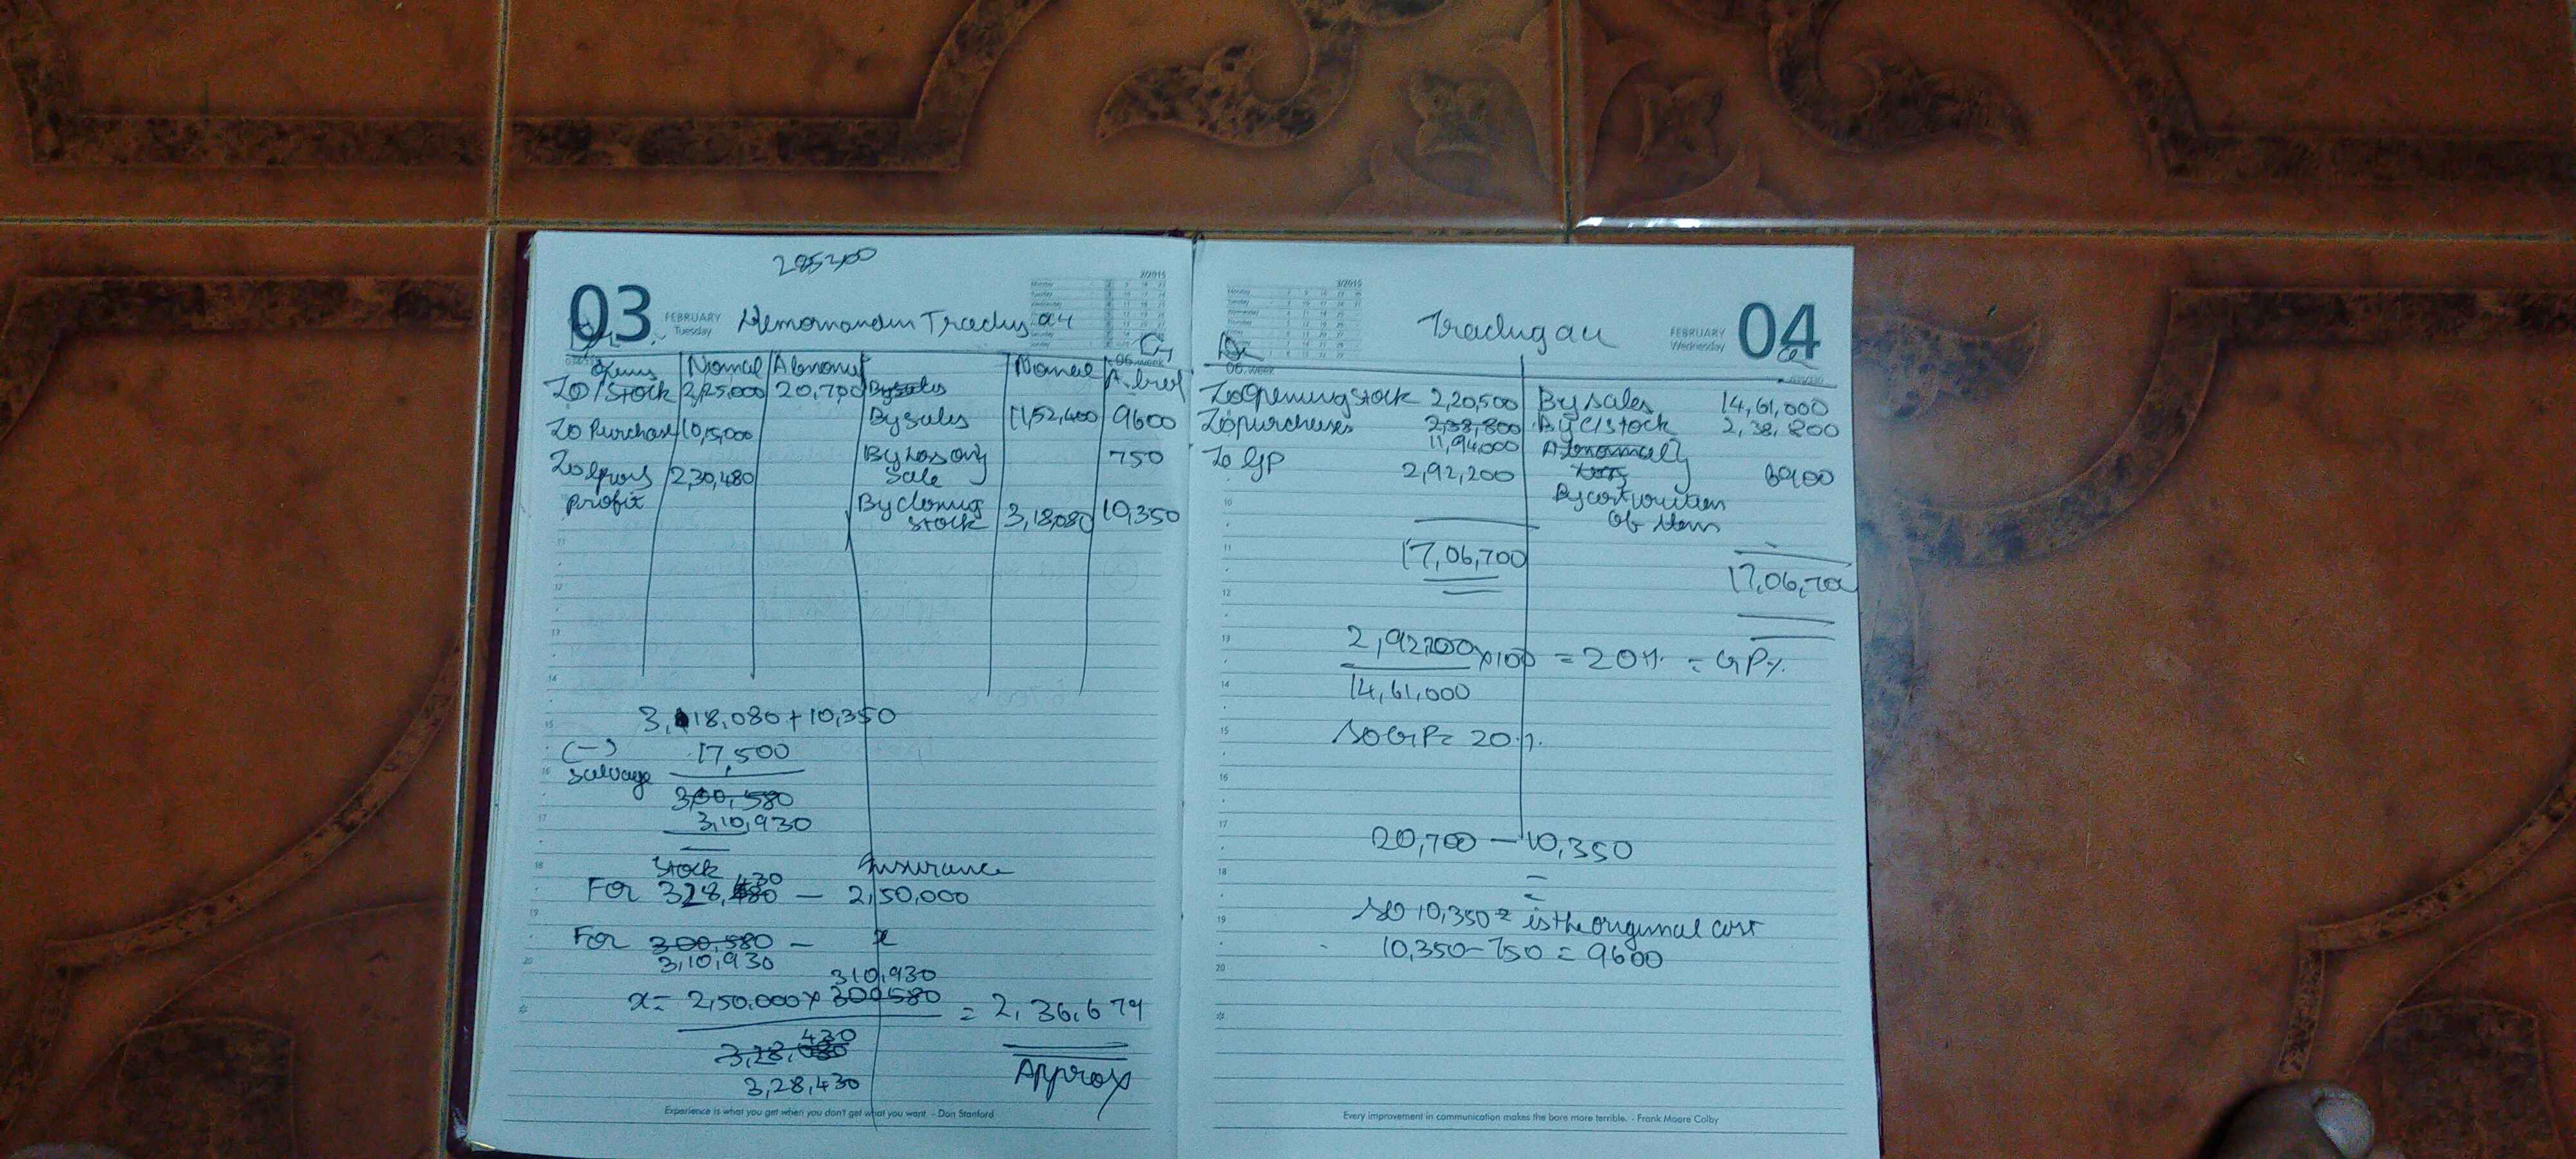 285200
03
FEBRUARY
Tuesday
Memorandum Trading a/c
2/2015
Dr
Cr
06 week
Items Normal Abnormal Normal
To/Stock 2,25,000 20,700 By sales
By sales 11,52,400 9600
To Purchase 10,15,000
By Loss on sale 750
To Gross Profit 2,30,480
By closing stock 3,18,080 10,350
3,18,080 + 10,350
(-) salvage 17,500
300,580
3,10,930
Stock Insurance
For 328,430 — 2,50,000
For 300,580 — x
3,10,930
310,930
x = 2,50,000 x 300580 = 2,36,679
430
3,28,080
3,28,430
Approx
Experience is what you get when you don't get what you want. - Don Stanford
3/2015
Trading a/c
FEBRUARY
Wednesday
04
Dr
06 week
To Opening Stock 2,20,500 By sales 14,61,000
To purchases 2,38,800 By C/Stock 2,38,800
11,94,000
To GP 2,92,200 6900
By cost written
of item
17,06,700 17,06,700
2,92,200 x 100 = 20% = GP%
14,61,000
So GP = 20%.
20,700 — 10,350
=
so 10,350 = is the original cost
10,350 - 750 = 9600
Every improvement in communication makes the bore more terrible. - Frank Moore Colby